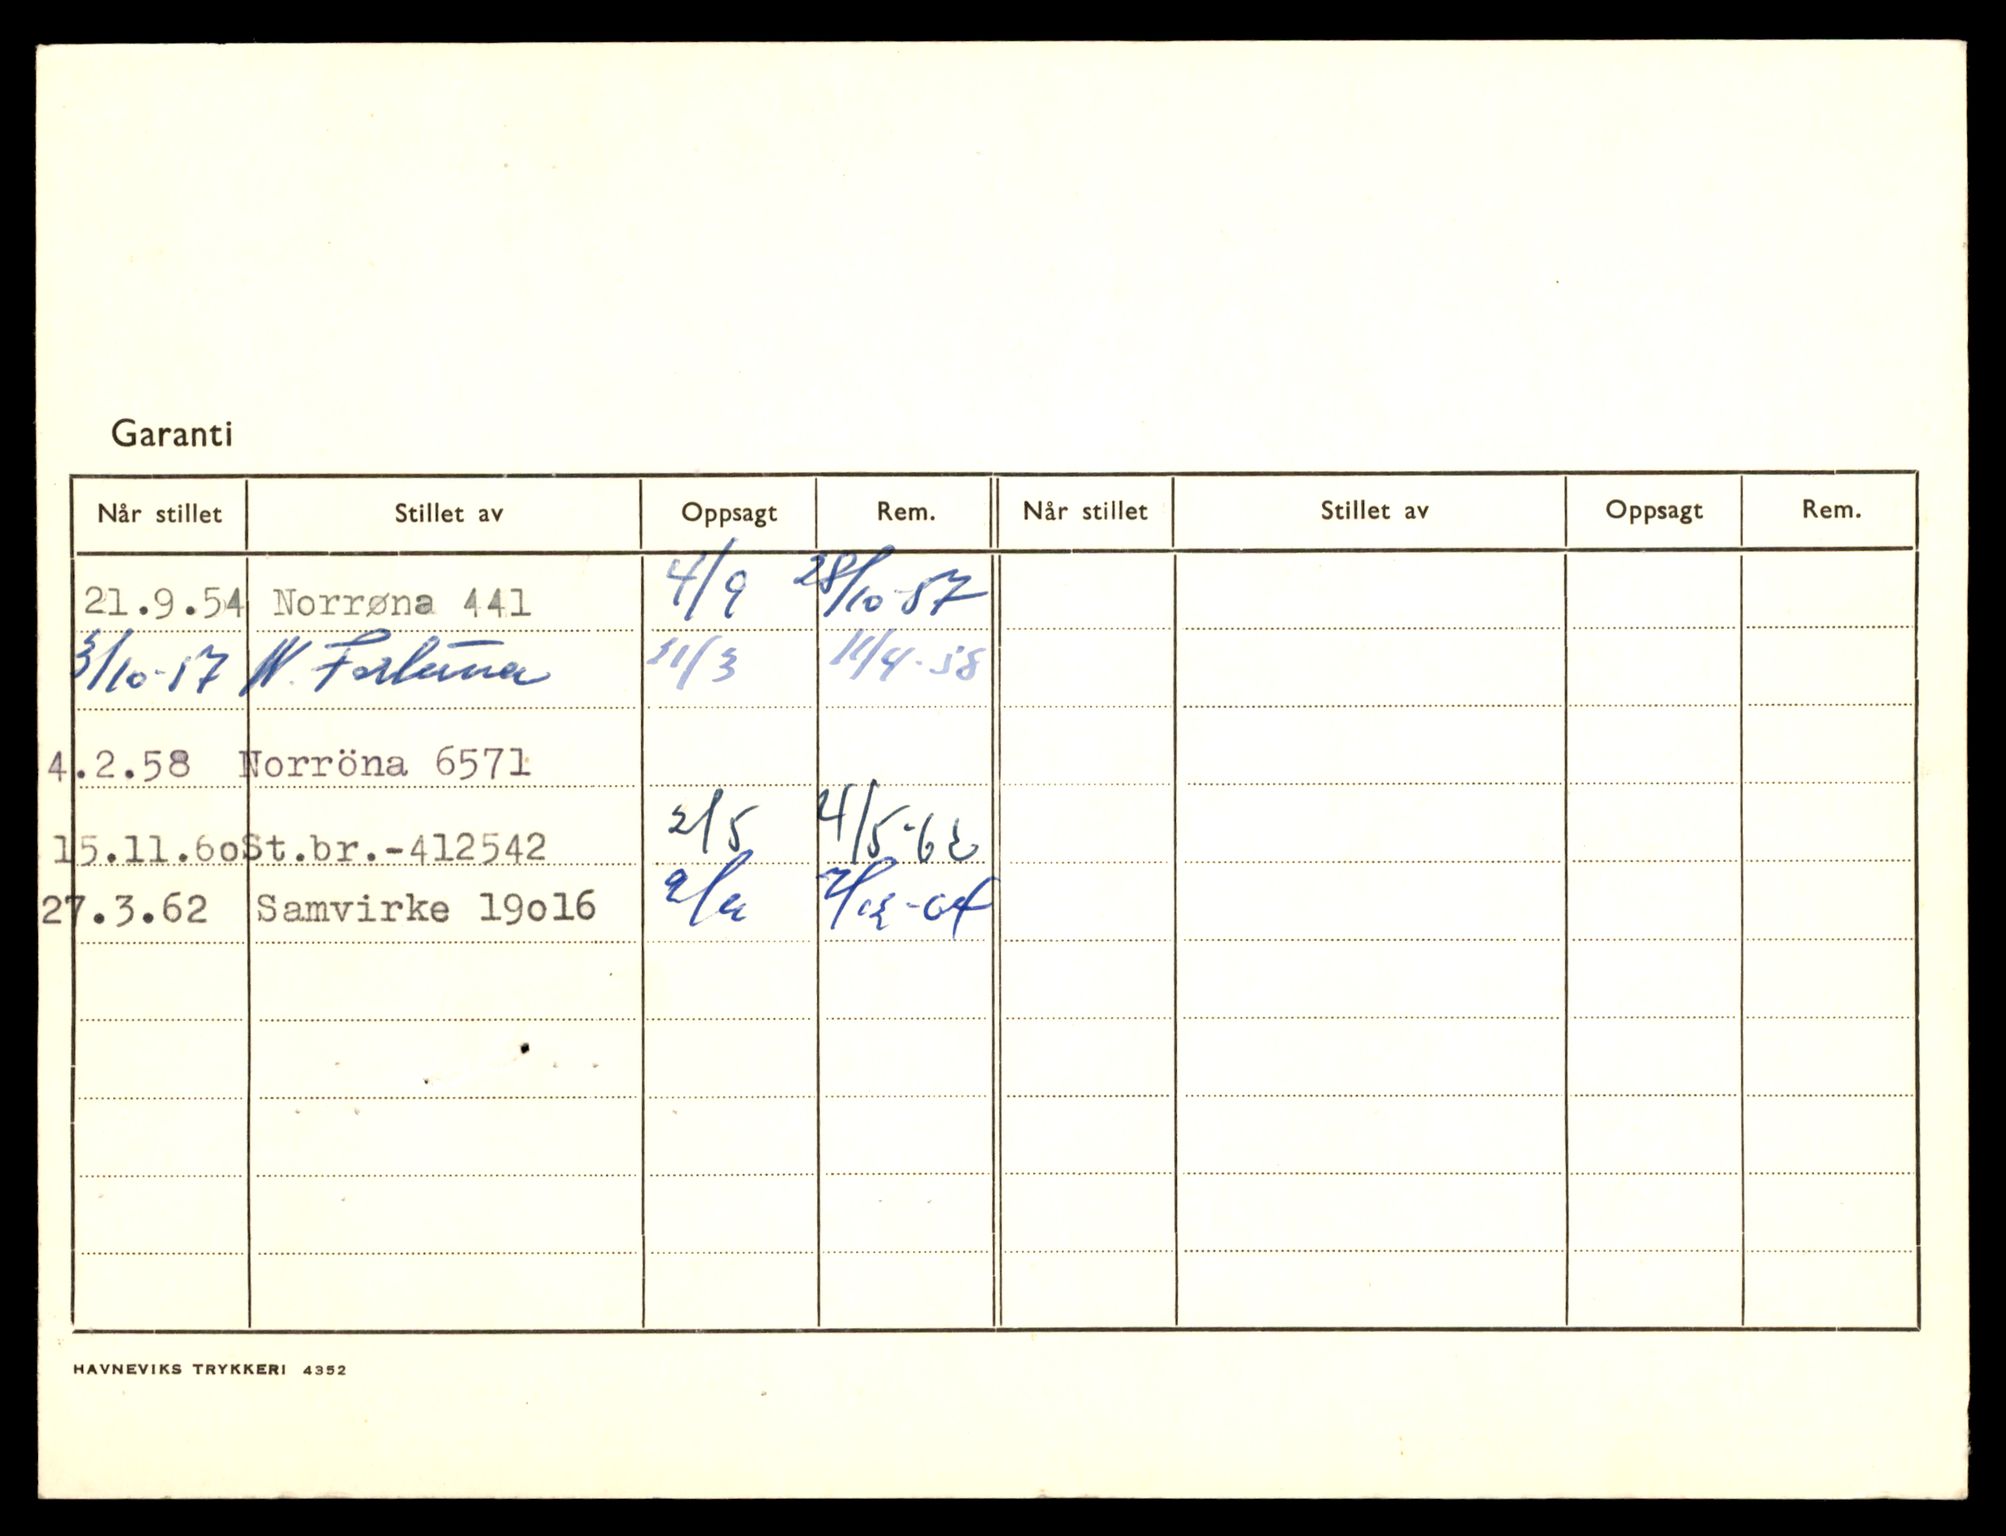 Garanti
Når stillet Stillet av Oppsagt Rem. Når stillet Stillet av Oppsagt Rem.
21.9.54 Norrøna 441 4/9 28/10-57
3/10-57 N. Fortuna 11/3 11/4-58
4.2.58 Norröna 6571
15.11.60 St.br.-412542 2/5 4/5-62
27.3.62 Samvirke 19016 7/12-64
HAVNEVIKS TRYKKERI 4352